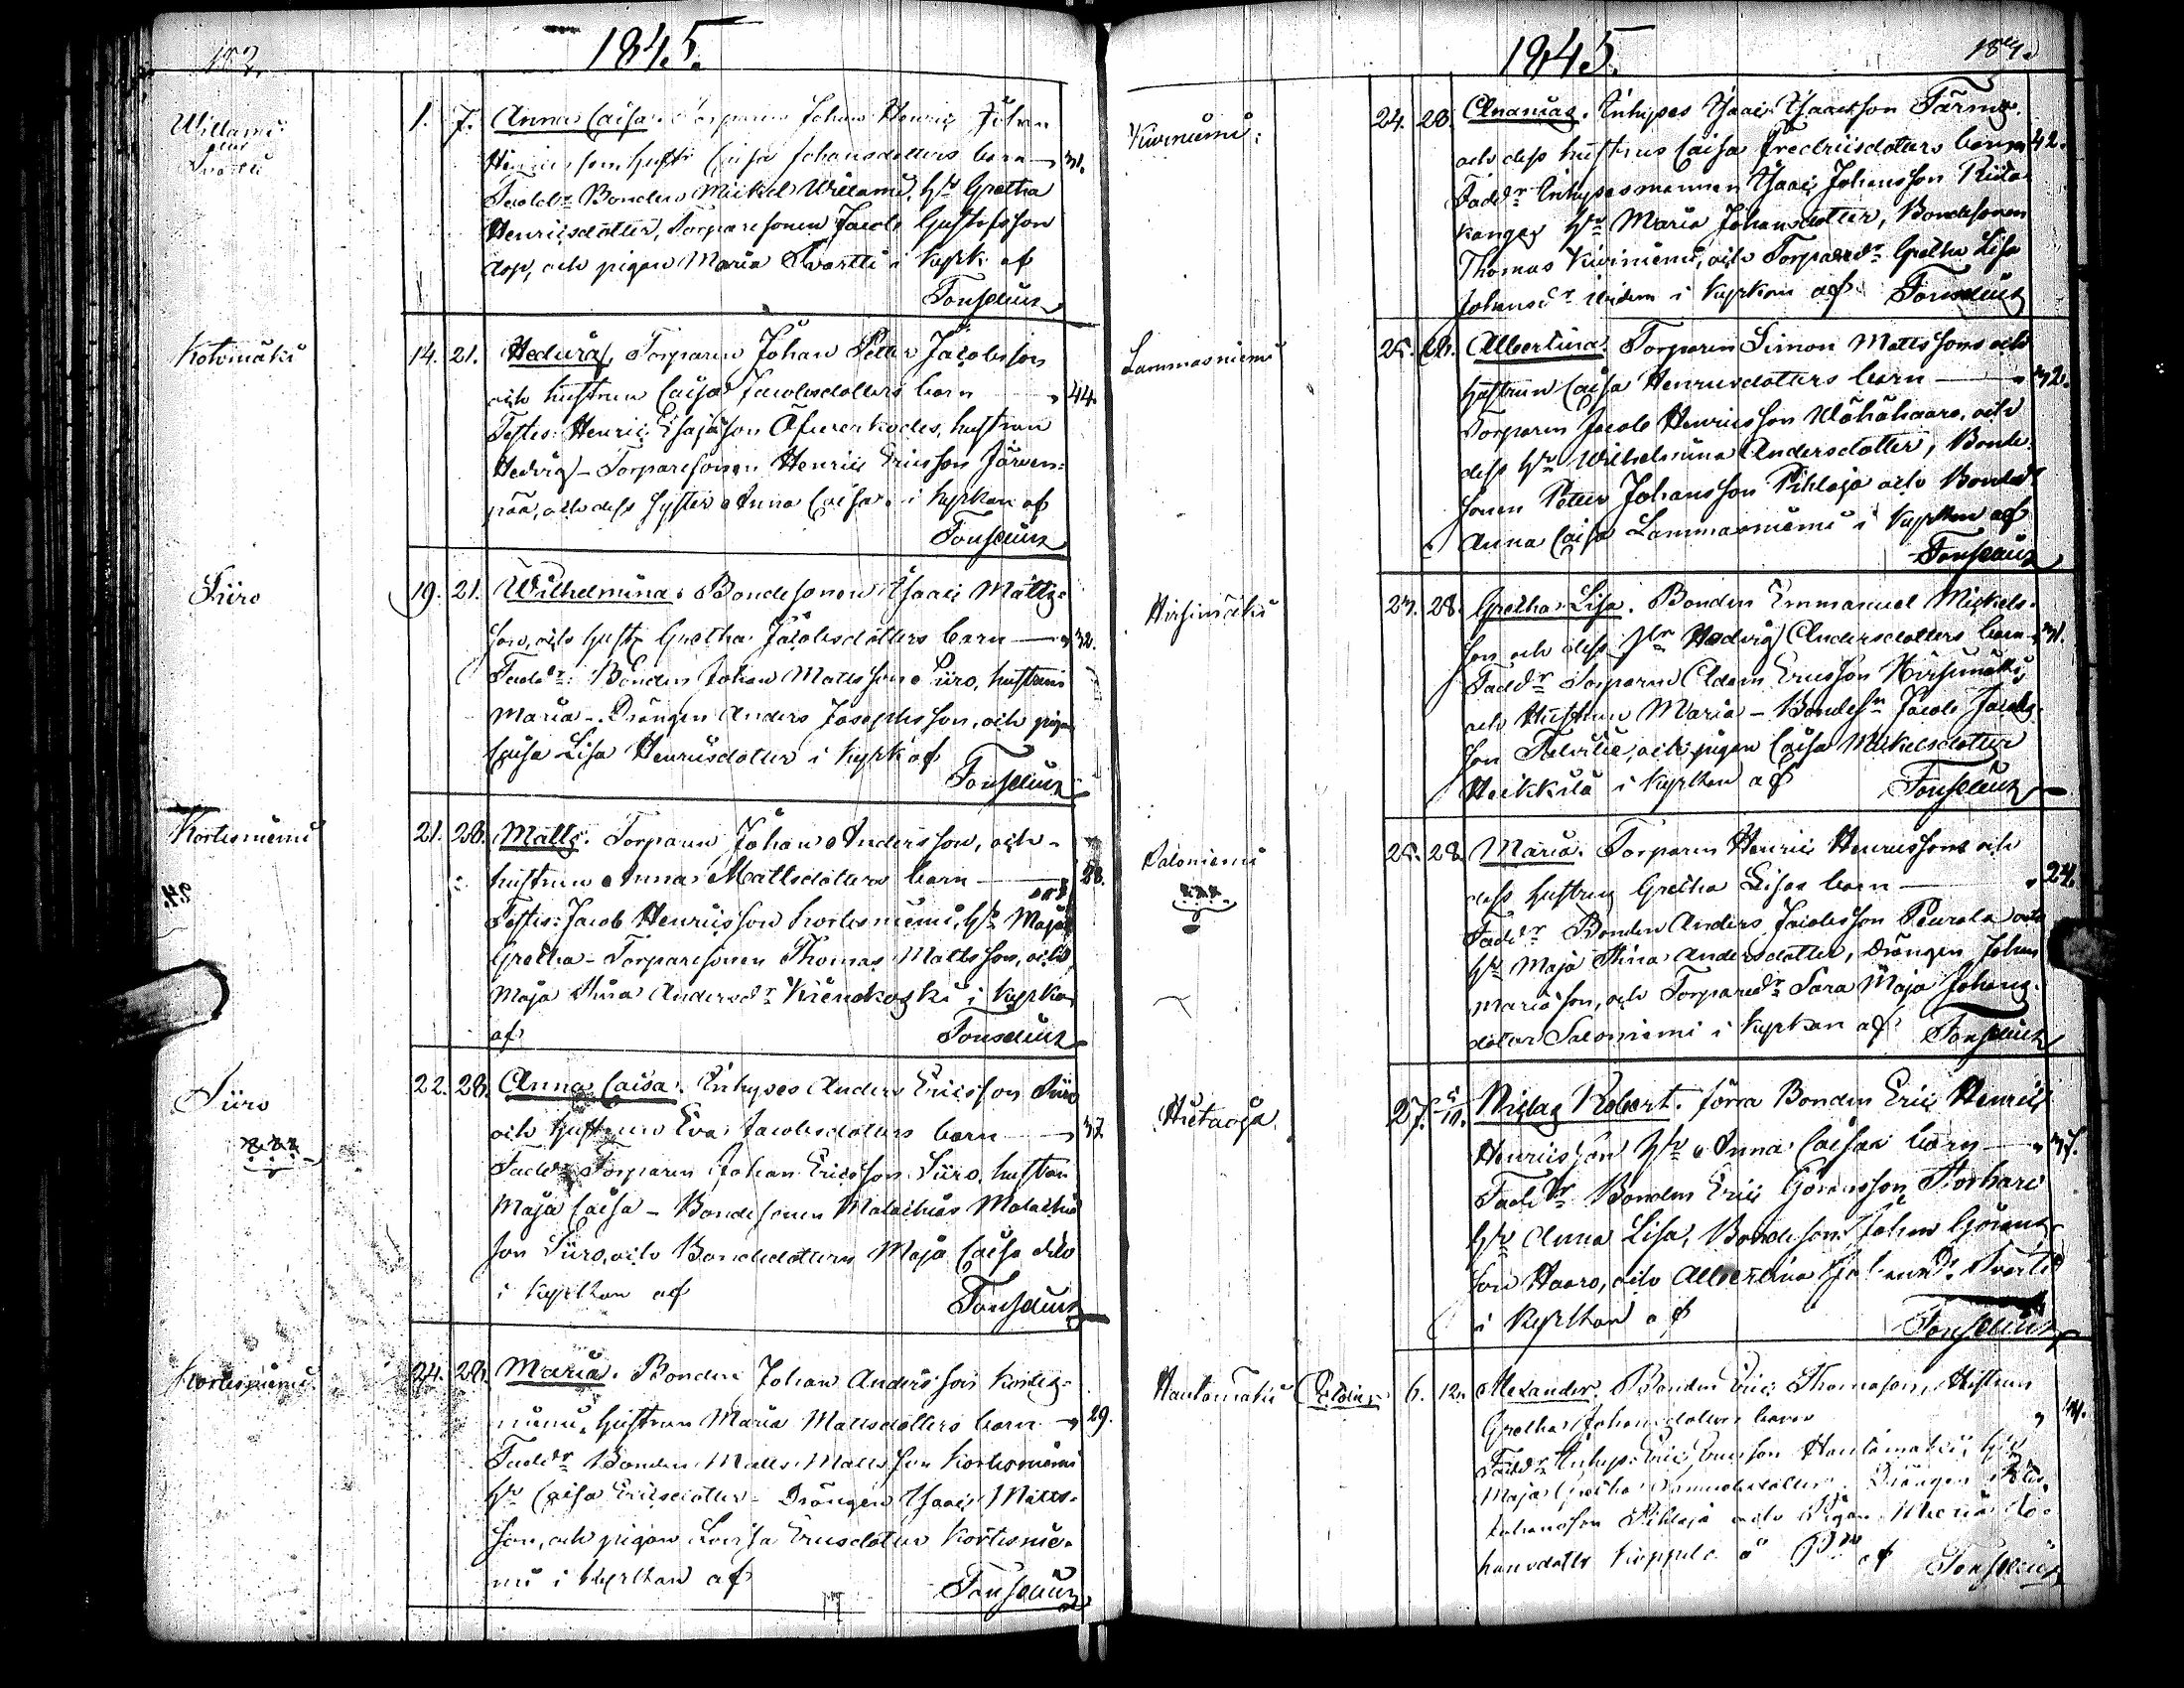 1845.
Willami
Svartti
1. 7. Anna Caisa. Torparen Johan Henric Johan
Henricsson hustr Caisa Johansdotters barn 31.
Faddr Bonden Mickel Willami, hu Gretha
Henricsdotter, Torparesonen Jacob Gustafsson
och pigan Maria Svartti i kyrk. af
Tonselius
Kotomäki
14. 21. Hedvig. Torparen Johan Petter Jacobsson
och hustrun Caisa Jacobsdotters barn 44.
Testes: Henric Esajasson hustrun
Hedvig - Torparesonen Henric Ericsson Järven-
pää, och dess syster Anna Caisa i kyrkan af
Tonselius
Siiro
19. 21. Wilhelmina. Bondesonen Isaac Matts-
son, och hustr Gretha Jacobsdotters barn 32.
Faddr: Bonden Johan Mattsson Siiro, hustrun
Maria - Drängen Anders Josephsson, och pigan
Caisa Lisa Henricsdotter i kyrk af
Tonselius
Kortesniemi
21. 28. Matts. Torparen Johan Andersson, och
hustrun Anna Mattsdotters barn 28.
Testes: Jacob Henricsson Kortesniemi, hu Maja
Gretha - Torparesonen Thomas Mattsson, och
Maja Stina Andersdr Kiendkoski i kyrkan
af Tonselius
Siiro
22. 28. Anna Caisa. Inhyses Anders Ericsson Siiro
och hustrun Eva Jacobsdotters barn 37.
Faddr Torparen Johan Ericsson Siiro, hustrun
Maja Caisa - Bondesonen Malachias Malachias
son Siiro, och Bondedottern Maja Caisa dito
i kyrkan af Tonselius
Kortesniemi
24. 28. Maria. Bonden Johan Andersson Kortes-
niemi, hustrun Maria Mattsdotters barn 29.
Faddr Bonden Matts Mattsson Kortesniemi
hu Caisa Ericsdotter - Drängen Isaac Matts-
son, och pigan Lovisa Ericsdotter Kortesnie-
mi i kyrkan af Tonselius
1845.
Kiviniemi
24. 28. Ananias. Inhyses Isaac Isaacsson Färm
och dess hustrus Caisa Fredricsdotters barn 42.
Faddr Inhysesmannen Isaac Johansson Rida
kangas hu Maria Johansdotter, Bondesonen
Thomas Kiviniemi, och Torparedr Gretha Lisa
Johansdr i kyrkan af Tonselius
Lammasniemi
25. Albertina. Torparen Simon Mattsson och
hustrun Caisa Henricsdotters barn 32.
Torparen Jacob Henricsson Wähähaaro, och
dess hu Wilhelmina Andersdotter, Bonde-
sonen Petter Johansson Pihlaja och Bondedr
Anna Caisa Lammasniemi i kyrkan af
Tonselius
Hirsimäki
27. 28. Gretha Lisa. Bonden Emmanuel Mickels-
son och dess hu Hedvig Andersdotters barn 31.
Faddr Torparen Adam Ericsson Hirsimäki
och Hustrun Maria - Bondesn Jacob Jacobs
son och pigan Caisa Mickelsdotter
Heikkilä i kyrkan af Tonselius
Saloniemi
25. 28. Maria. Torparen Henric Henricsson och
dess hustrus Gretha Lisas barn 24.
Faddr Bonden Anders Jacobsson Peurala och
hu Maja Stina Andersdotter, Drängen Johan
Mariason, och Torparedr Sara Maja Johans-
dotter Saloniemi i kyrkan af Tonselius
Hietaoja
27. 5/10. Niclas Robert. Förra Bonden Eric Henric
Henricsson hu Anna Caisas barn 37.
Faddr Bonden Eric Göransson Storhare
hu Anna Lisa, Bondeson Johan Görans-
son Haaro, och Albertina Svartti
i kyrkan af
Tonselius
Hautamäki
6. 12. Alexander. Bonden Eric Thomasson, Hustrun
Gretha Johansdotters barn
Faddr Inhyses Eric Ericsson Hautamäki, hu
Maja Gretha Drängen
Johansson Pihlaja och Pigan Maria Jo-
hansdotter af Tonselius